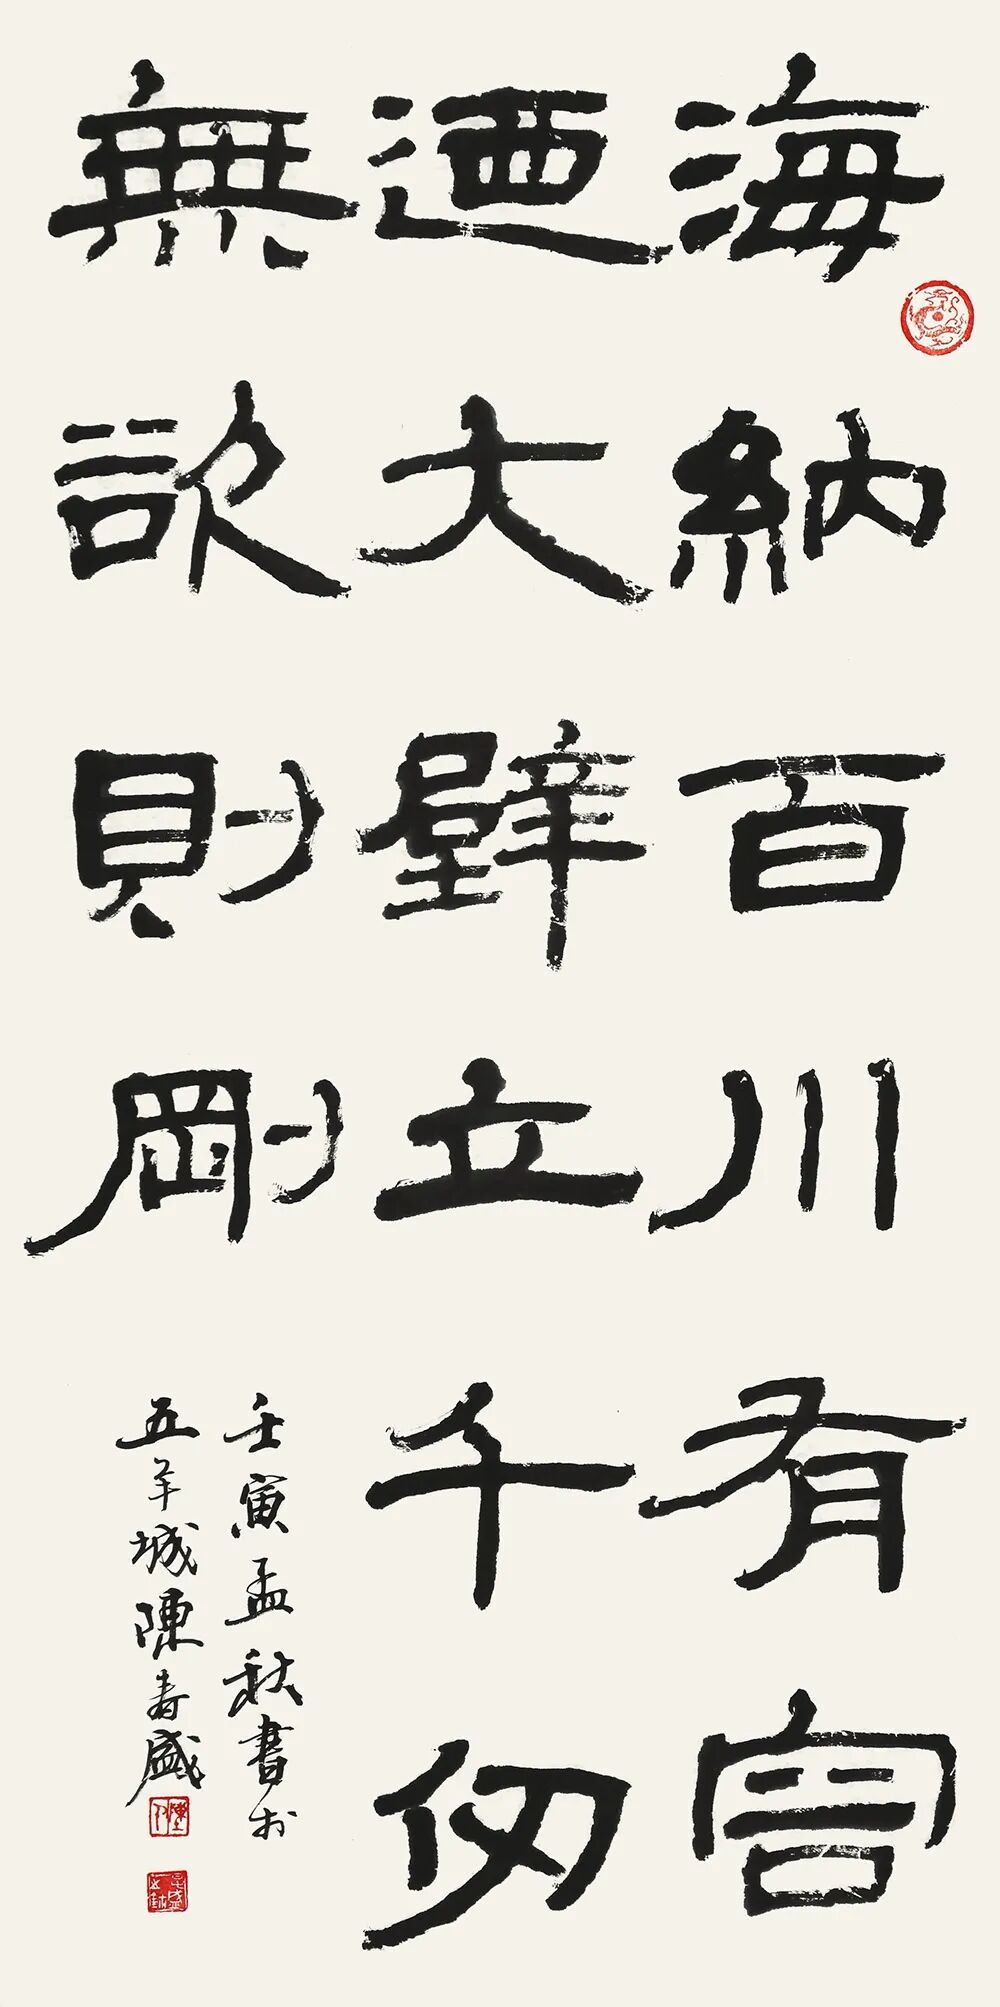 海納百川有容
迺大壁立千仞
無欲則剛
壬寅孟秋書於
五羊城陳壽盛